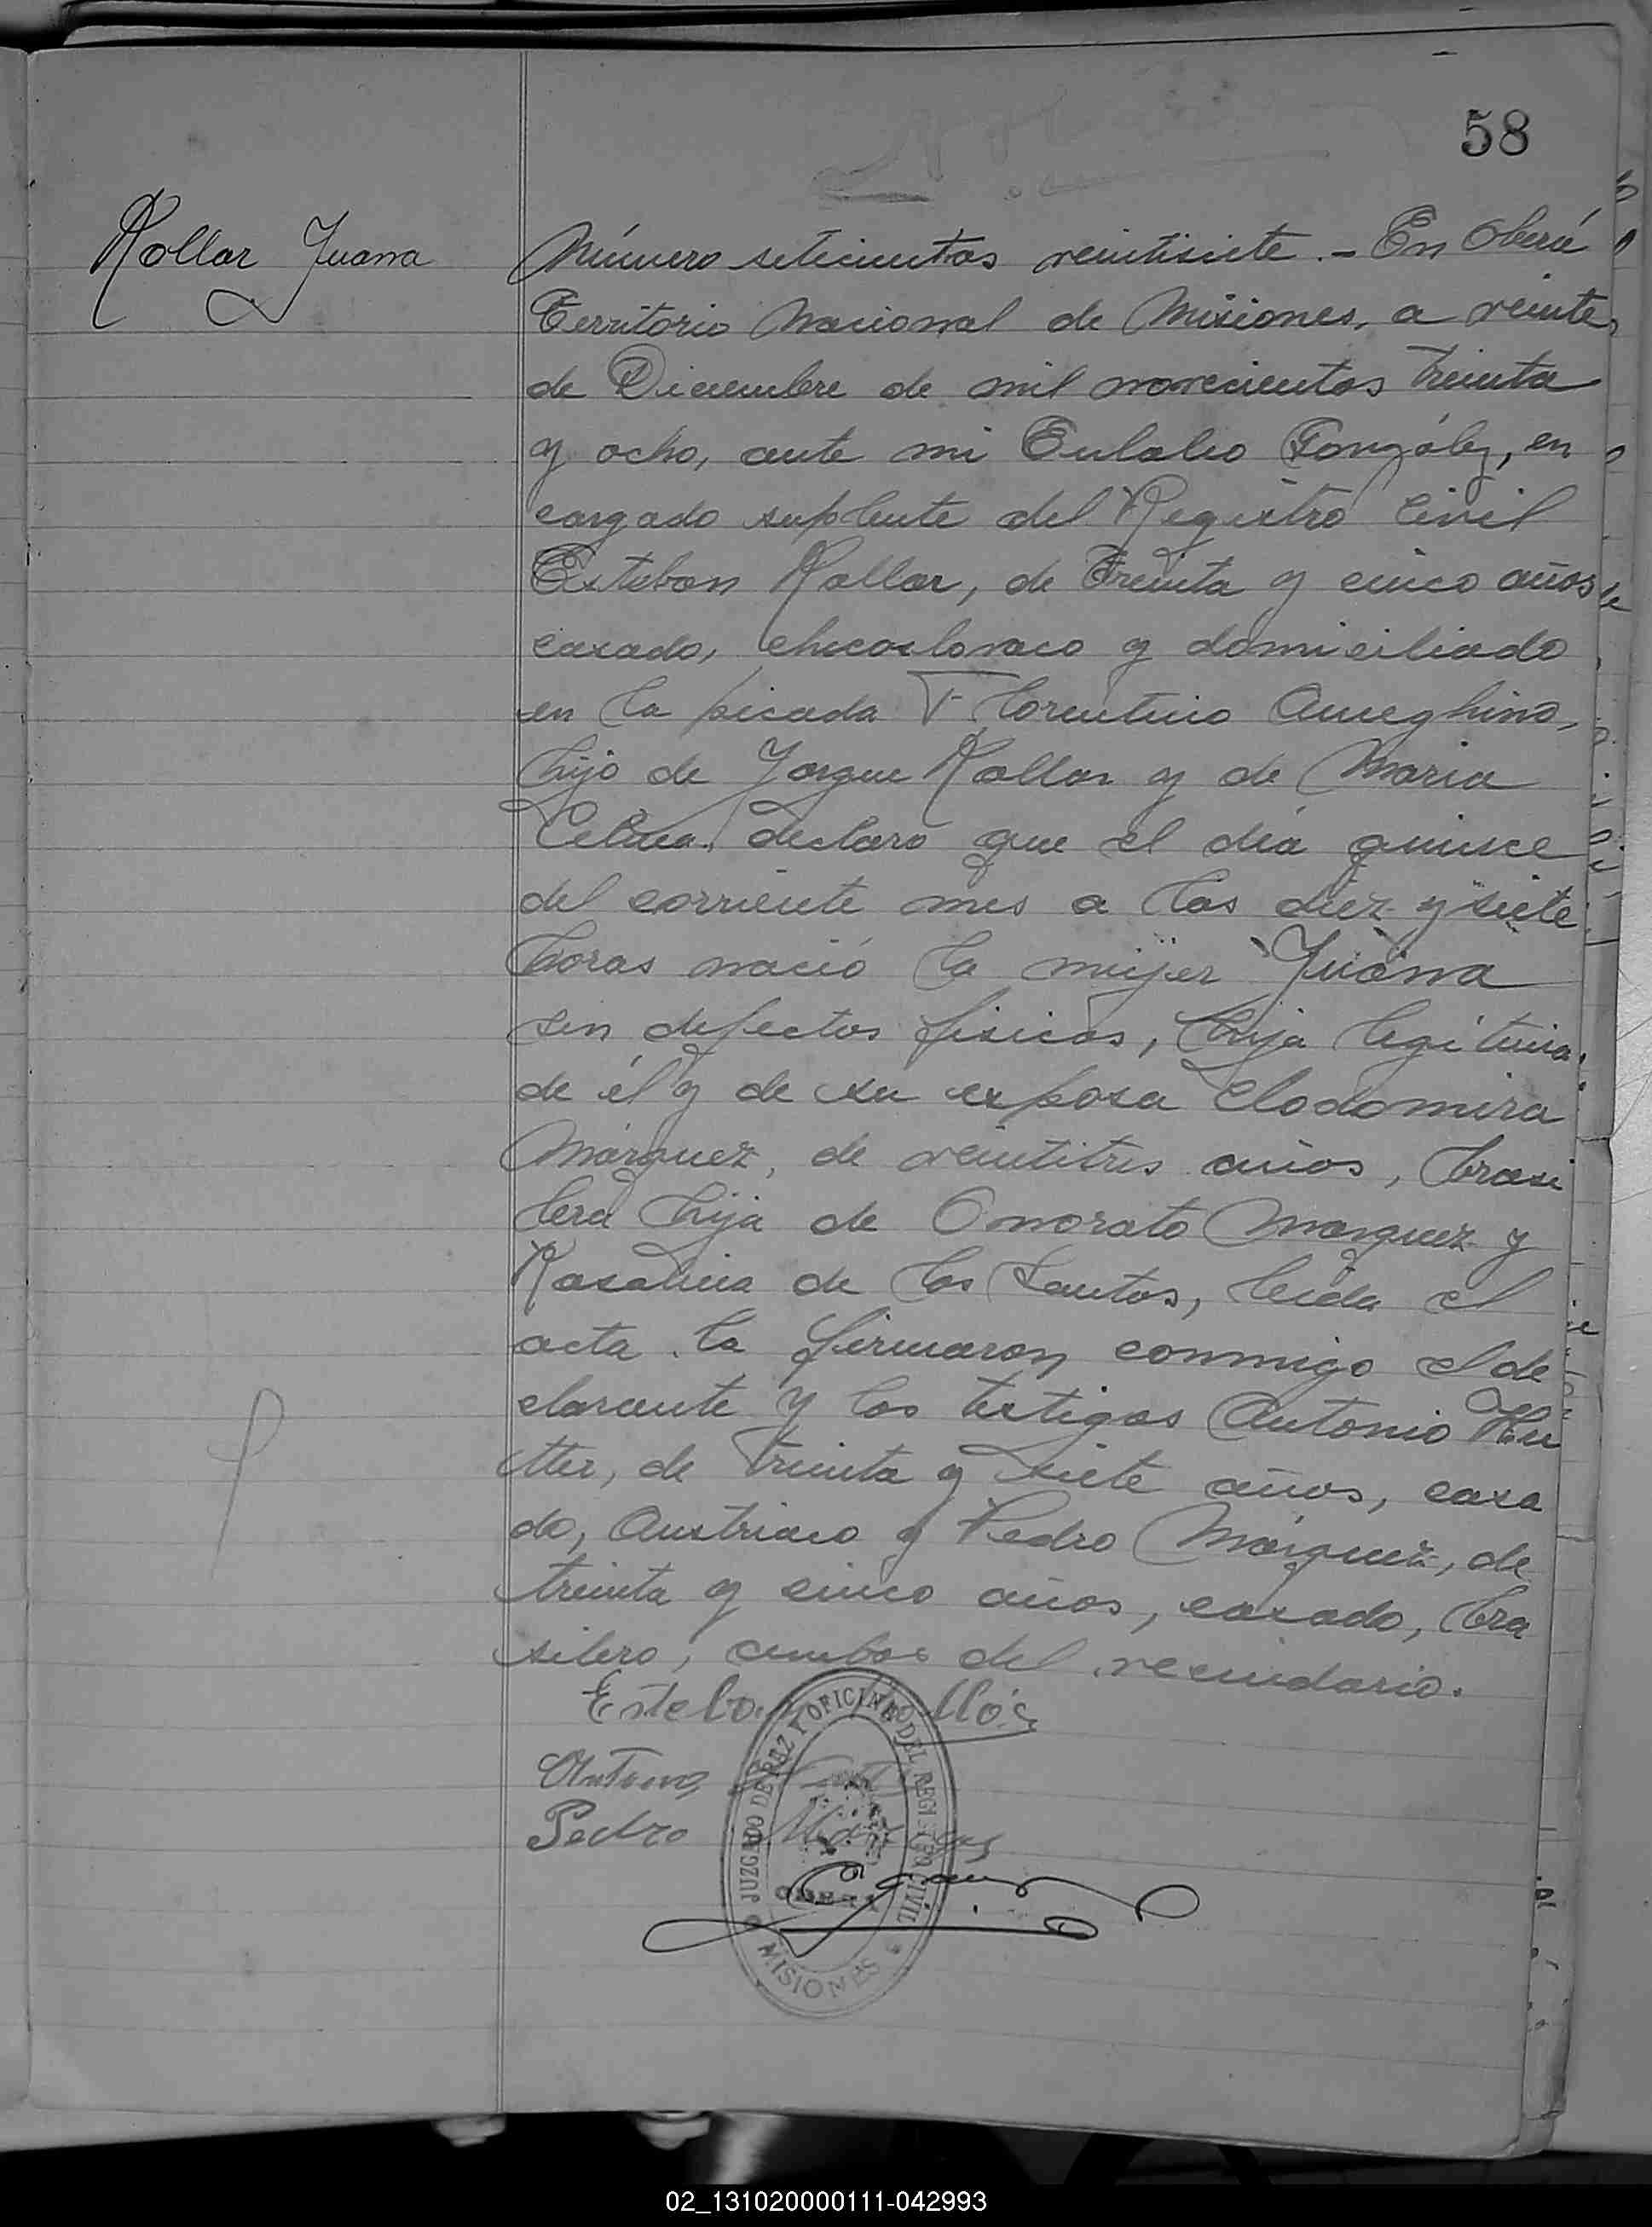 58
Kollar Juana
Número setecientos veintisiete.- En Oberá
Territorio Nacional de Misiones, a veinte
de Diciembre de mil novecientos treinta
y ocho, ante mi Eulalio González, en
cargado suplente del Registro Civil
Esteban Kollar, de treinta y cinco años
casado, checoslovaco y domiciliado
en la picada Florentino Ameghino,
hijo de Jorgue Kollar y de Maria
declaro que el día quince
del corriente mes a las diez y siete
horas nació la mujer Juana
sin defectos fisicos, hija legítima
de él y de su esposa Clodomira
Márquez, de veintitres años, brasi
lera hija de Onorato Marquez y
Rosalina de los Santos, leida el
acta la firmaron conmigo el de
clarante y los testigos Antonio Hu
tter, de treinta y siete años, casa
do, Austriaco y Pedro Márquez, de
treinta y cinco años, casado, bra
silero, ambos del vecindario.
Esteban
Antonio
Pedro
JUZGADO DE PAZ Y OFICINA DEL REGISTRO CIVIL
OBERA
MISIONES
02_131020000111-042993